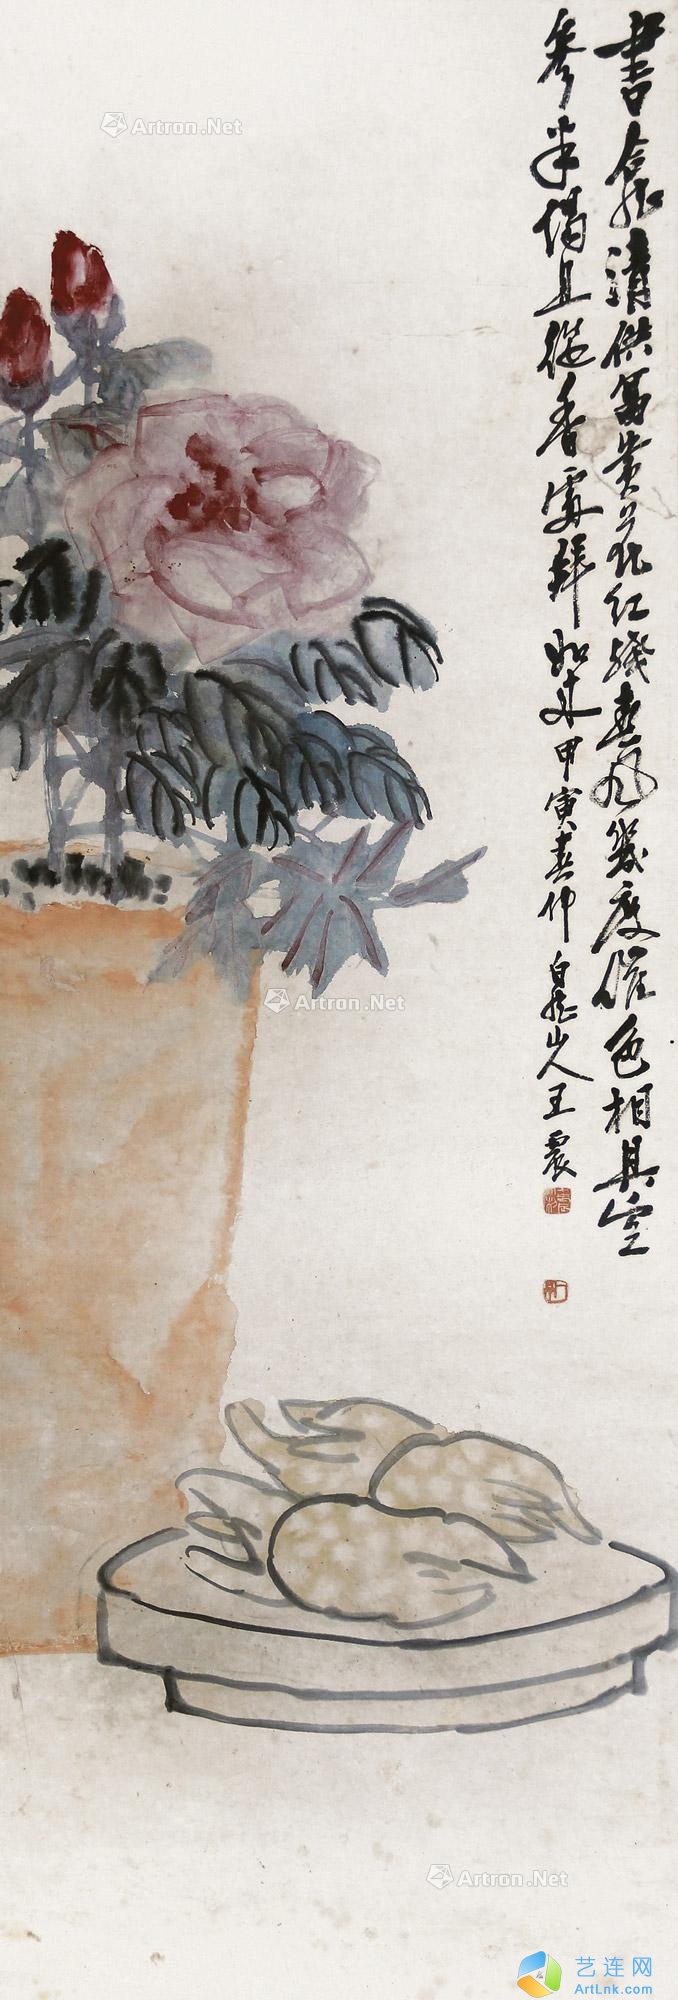 書龕清供富貴花紅綫春風幾度催色相真空
參半偈且從香處拜如來甲寅春仲白龍山人王震
Artron.Net
Artron.Net
Artron.Net
艺连网
ArtLnk.com